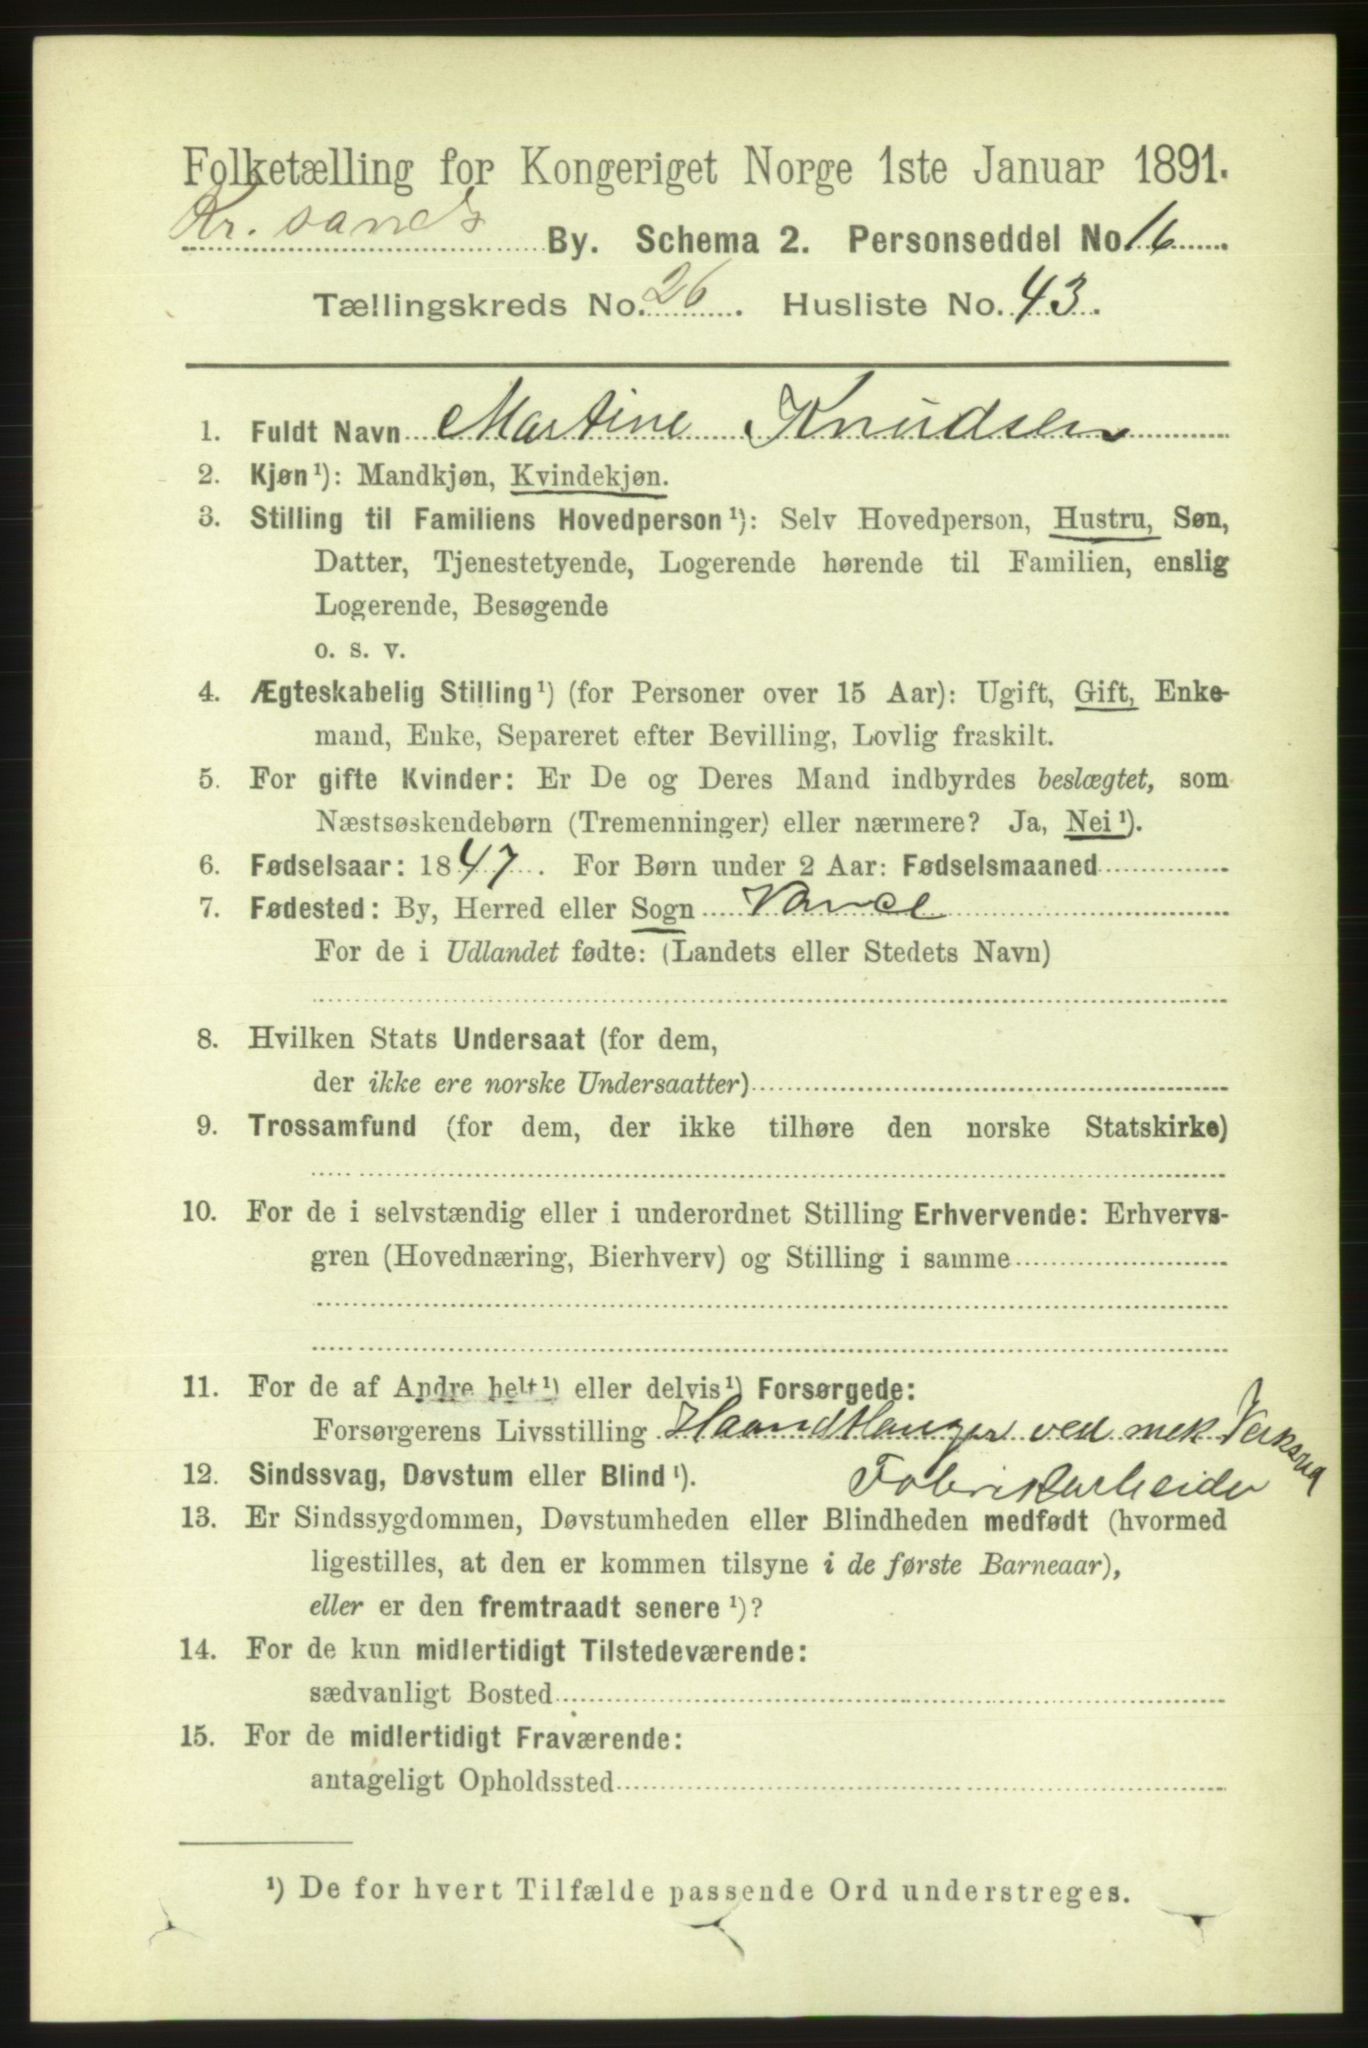 Folketælling for Kongeriget Norge 1ste Januar 1891.
Kr. sands By. Schema 2. Personseddel No 16
Tællingskreds No. 26. Husliste No. 43.
1. Fuldt Navn Martine Knudsen
2. Kjøn¹): Mandkjøn, Kvindekjøn.
3. Stilling til Familiens Hovedperson¹): Selv Hovedperson, Hustru, Søn,
Datter, Tjenestetyende, Logerende hørende til Familien, enslig
Logerende, Besøgende
o. s. v.
4. Ægteskabelig Stilling¹) (for Personer over 15 Aar): Ugift, Gift, Enke-
mand, Enke, Separeret efter Bevilling, Lovlig fraskilt.
5. For gifte Kvinder: Er De og Deres Mand indbyrdes beslægtet, som
Næstsøskendebørn (Tremenninger) eller nærmere? Ja, Nei¹).
6. Fødselsaar: 1847. For Børn under 2 Aar: Fødselsmaaned
7. Fødested: By, Herred eller Sogn Vance
For de i Udlandet fødte: (Landets eller Stedets Navn)
8. Hvilken Stats Undersaat (for dem,
der ikke ere norske Undersaatter)
9. Trossamfund (for dem, der ikke tilhøre den norske Statskirke)
10. For de i selvstændig eller i underordnet Stilling Erhvervende: Erhvervs-
gren (Hovednæring, Bierhverv) og Stilling i samme
11. For de af Andre helt¹) eller delvis¹) Forsørgede:
Forsørgerens Livsstilling Haandtlanger ved mek Verksted
12. Sindssvag, Døvstum eller Blind¹). Fabrikarbeider
13. Er Sindssygdommen, Døvstumheden eller Blindheden medfødt (hvormed
ligestilles, at den er kommen tilsyne i de første Barneaar),
eller er den fremtraadt senere¹)?
14. For de kun midlertidigt Tilstedeværende:
sædvanligt Bosted
15. For de midlertidigt Fraværende:
antageligt Opholdssted
¹) De for hvert Tilfælde passende Ord understreges.